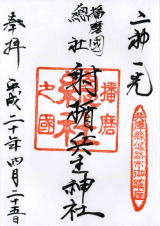 二神一光
播磨國
總社
射楯兵主神社
奉拝
平成二十一年四月二十五日
播磨
之國
總社